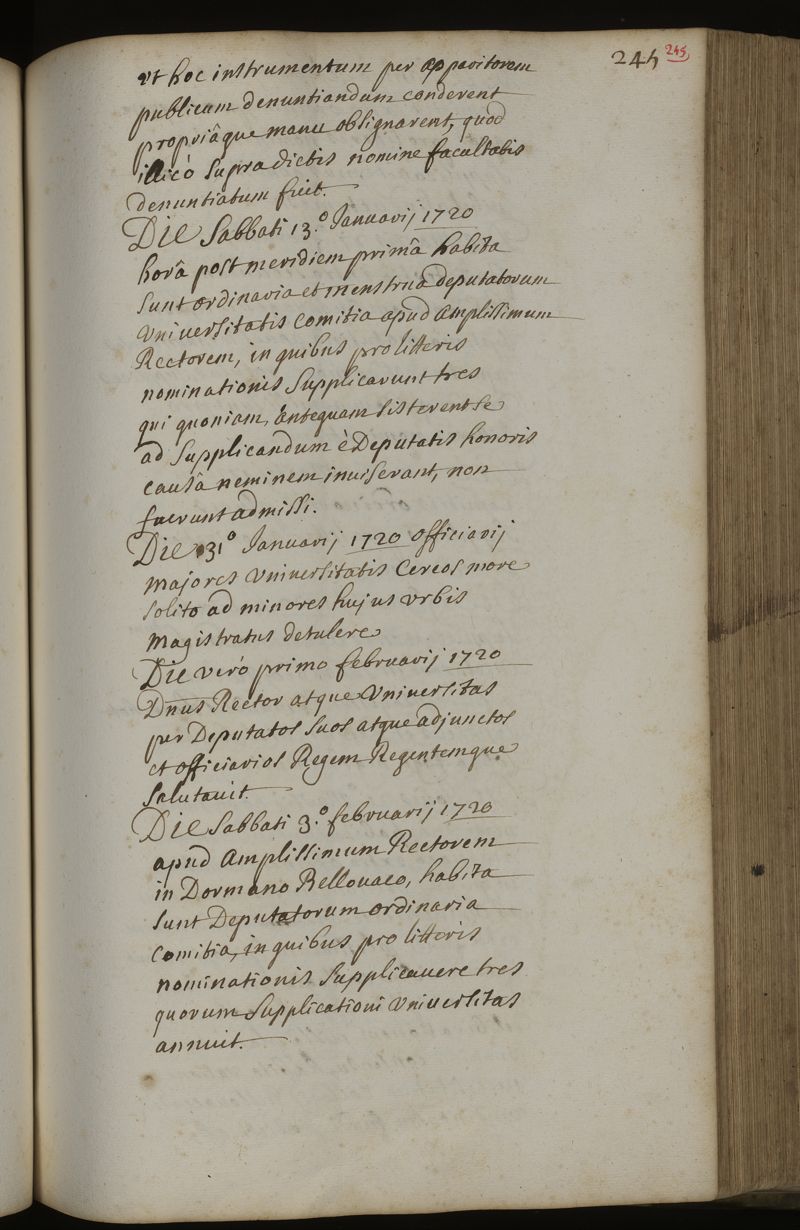 245 245
vt hoc instrumentum per apparitorem
publicum denuntiandum conderent
propriâque manu obsignarent, quod
illicò supra dictis nomine facultatis
denuntiatum fuit.
Die Sabbati 13.° Januarij 1720
horâ post meridiem primâ habita
sunt ordinaria et menstrua deputatorum
Vniversitatis Comitia apud Amplissimum
Rectorem, in quibus pro litteris
nominationis supplicarunt tres
qui quoniam, antequam sisterent se
ad supplicandum è Deputatis honoris
causâ neminem inviserant, non
fuerunt admissi.
Die 31° Januarij 1720 officiarij
majores Vniversitatis Cereos more
solito ad minores hujus vrbis
Magistratus detulere
Die verò primo februarij 1720
Dnus Rector atque Vniversitas
per Deputatos suos atque adjunctos
et officiarios Regem Regentemque
salutavit.
Die Sabbati 3.° februarij 1720
apud Amplissimum Rectorem
in Dormano Bellovaco, habita
sunt Deputatorum ordinaria
Comitia, in quibus pro litteris
nominationis supplicavere tres
quorum supplicationi Vniversitas
annuit.